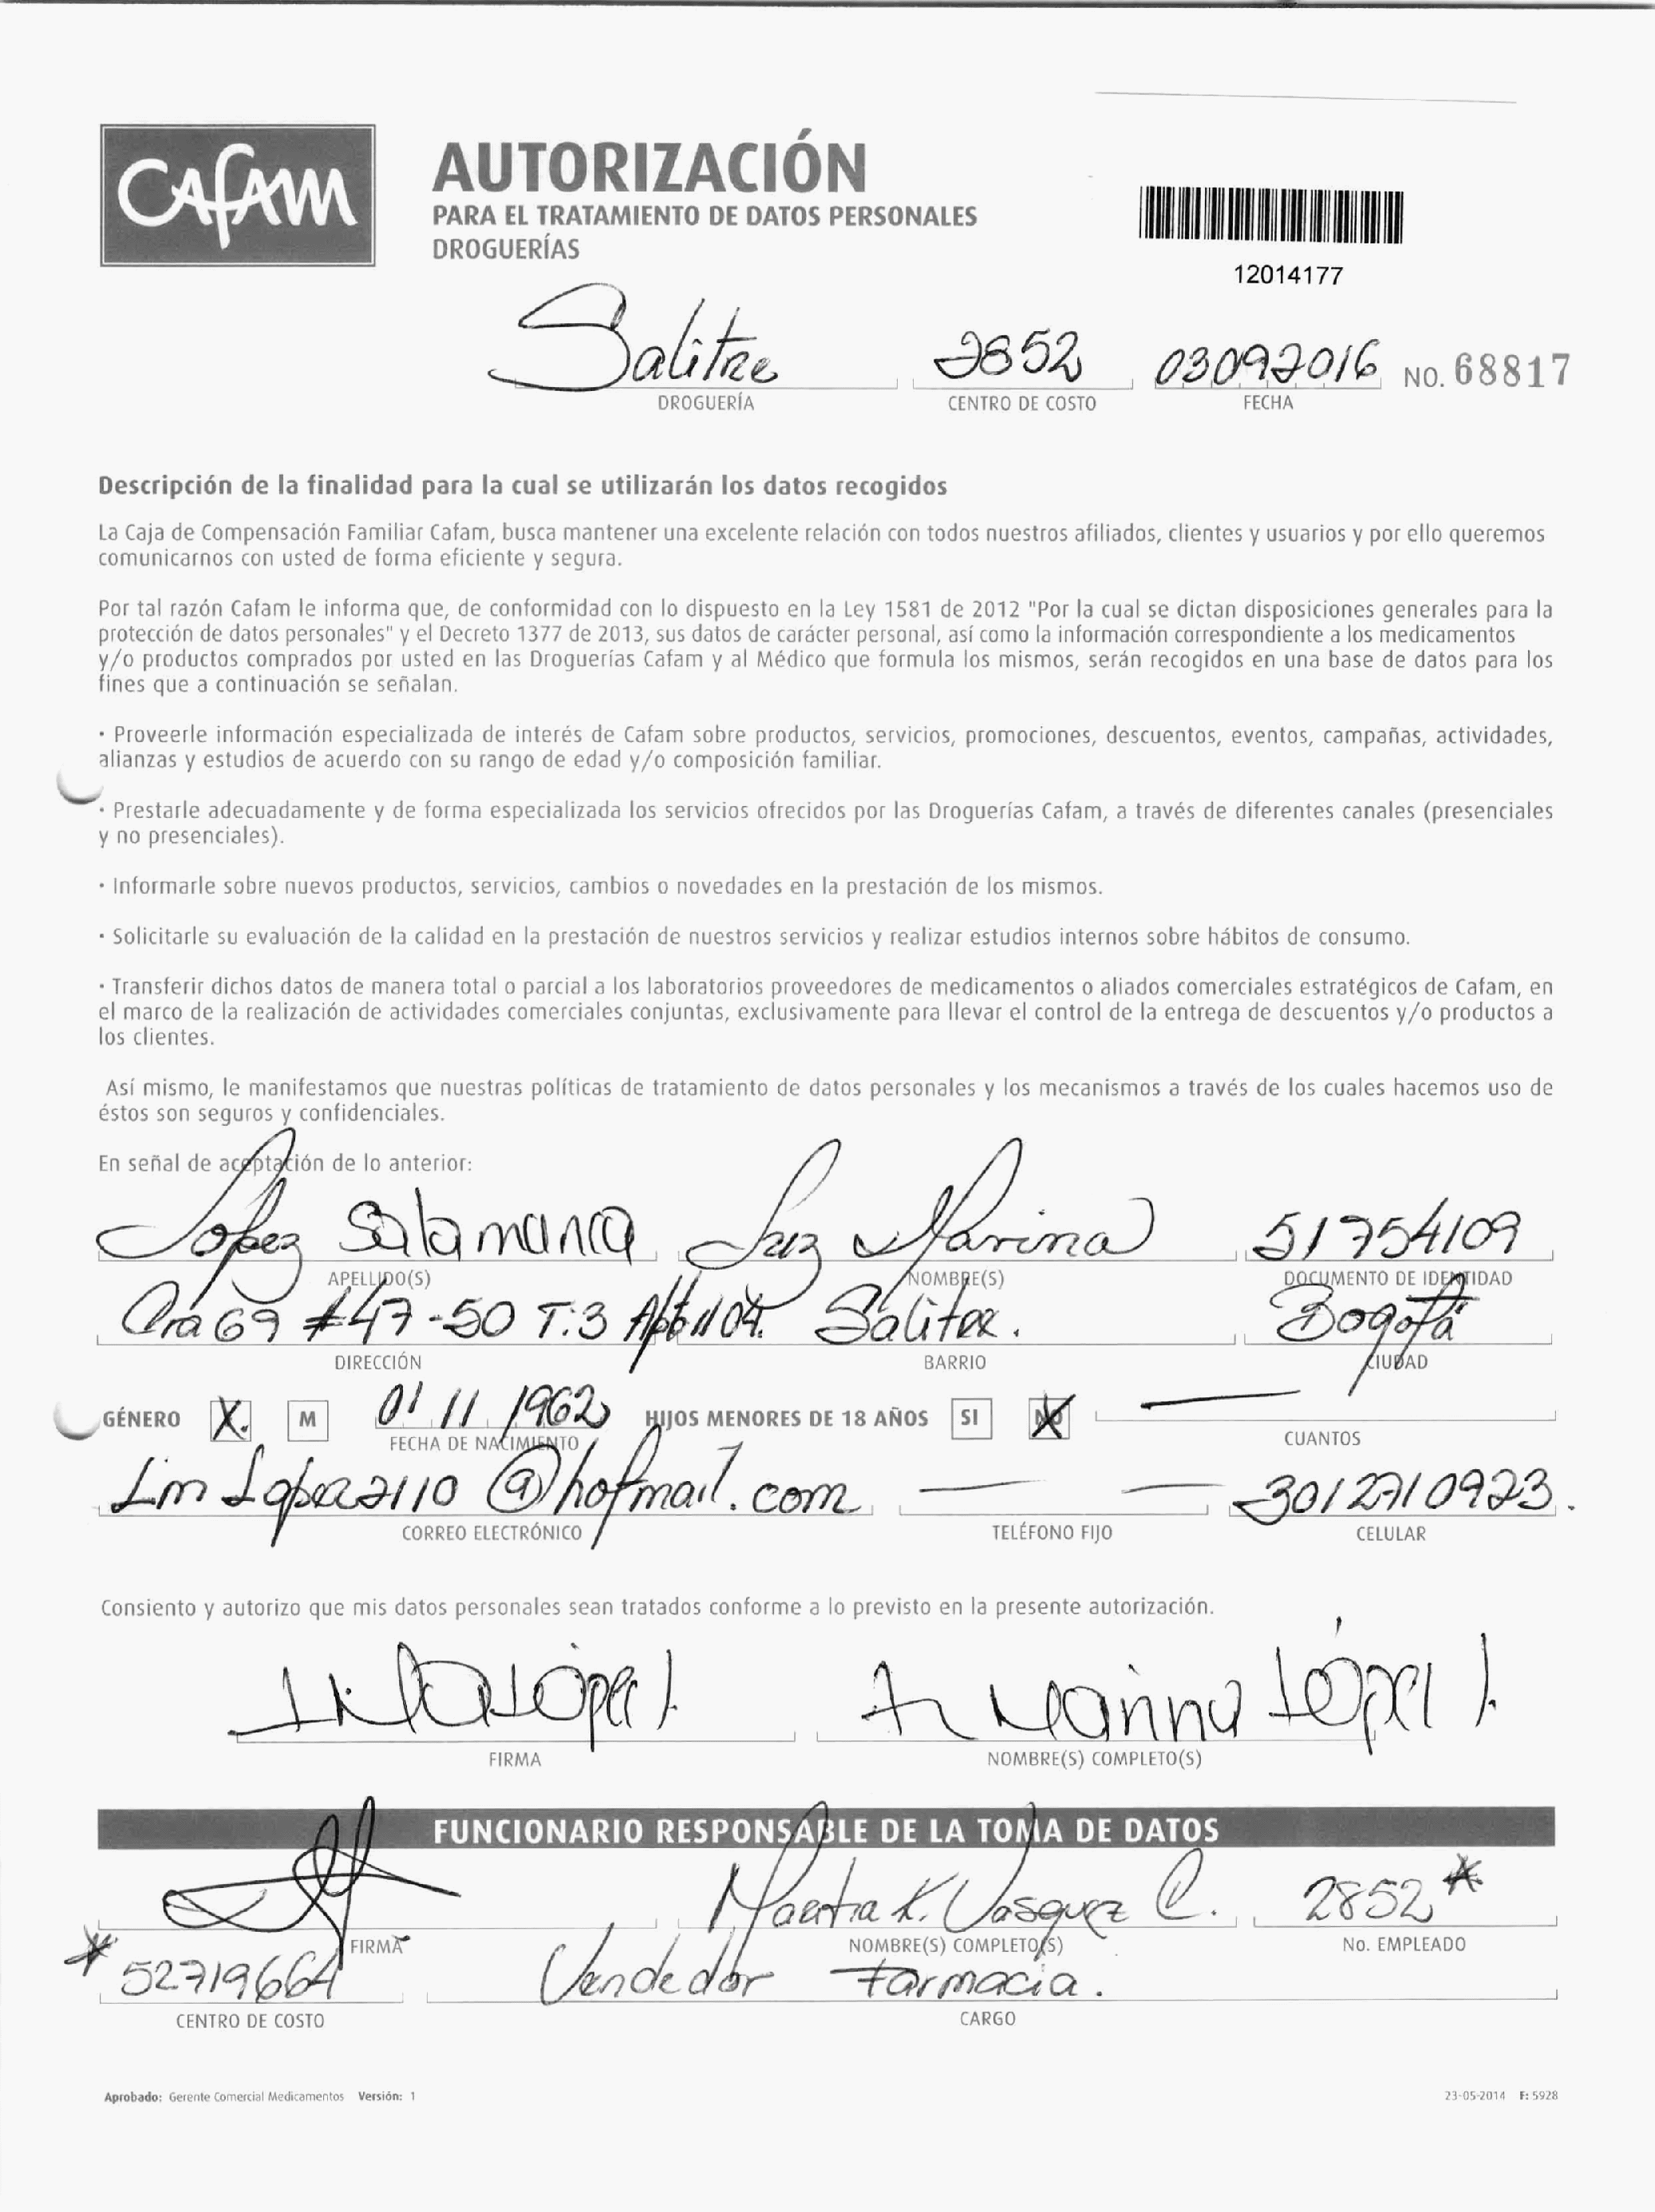 CAFAM
AUTORIZACIÓN
PARA EL TRATAMIENTO DE DATOS PERSONALES
DROGUERÍAS
12014177
Salitre 2852 03092016 NO. 68817
DROGUERÍA CENTRO DE COSTO FECHA
Descripción de la finalidad para la cual se utilizarán los datos recogidos
La Caja de Compensación Familiar Cafam, busca mantener una excelente relación con todos nuestros afiliados, clientes y usuarios y por ello queremos
comunicarnos con usted de forma eficiente y segura.
Por tal razón Cafam le informa que, de conformidad con lo dispuesto en la Ley 1581 de 2012 "Por la cual se dictan disposiciones generales para la
protección de datos personales" y el Decreto 1377 de 2013, sus datos de carácter personal, así como la información correspondiente a los medicamentos
y/o productos comprados por usted en las Droguerías Cafam y al Médico que formula los mismos, serán recogidos en una base de datos para los
fines que a continuación se señalan.
· Proveerle información especializada de interés de Cafam sobre productos, servicios, promociones, descuentos, eventos, campañas, actividades,
alianzas y estudios de acuerdo con su rango de edad y/o composición familiar.
· Prestarle adecuadamente y de forma especializada los servicios ofrecidos por las Droguerías Cafam, a través de diferentes canales (presenciales
y no presenciales).
· Informarle sobre nuevos productos, servicios, cambios o novedades en la prestación de los mismos.
· Solicitarle su evaluación de la calidad en la prestación de nuestros servicios y realizar estudios internos sobre hábitos de consumo.
· Transferir dichos datos de manera total o parcial a los laboratorios proveedores de medicamentos o aliados comerciales estratégicos de Cafam, en
el marco de la realización de actividades comerciales conjuntas, exclusivamente para llevar el control de la entrega de descuentos y/o productos a
los clientes.
Así mismo, le manifestamos que nuestras políticas de tratamiento de datos personales y los mecanismos a través de los cuales hacemos uso de
éstos son seguros y confidenciales.
En señal de aceptación de lo anterior:
Lopez Salamanca Luz Marina 51754109
APELLIDO(S) NOMBRE(S) DOCUMENTO DE IDENTIDAD
Cra 69 #47-50 T:3 Apto 1104. Salitre. Bogotá
DIRECCIÓN BARRIO CIUDAD
GÉNERO X. M 01 11 1962 HIJOS MENORES DE 18 AÑOS SI NO X
FECHA DE NACIMIENTO CUANTOS
@hotmail.com
CORREO ELECTRÓNICO TELÉFONO FIJO CELULAR
Consiento y autorizo que mis datos personales sean tratados conforme a lo previsto en la presente autorización.
Marina López
FIRMA NOMBRE(S) COMPLETO(S)
FUNCIONARIO RESPONSABLE DE LA TOMA DE DATOS
K. Vasquez C. 2852 *
FIRMA NOMBRE(S) COMPLETO(S) No. EMPLEADO
* 52719664 Vendedor Farmacia.
CENTRO DE COSTO CARGO
Aprobado: Gerente Comercial Medicamentos Versión: 1 23-05-2014 F: 5928